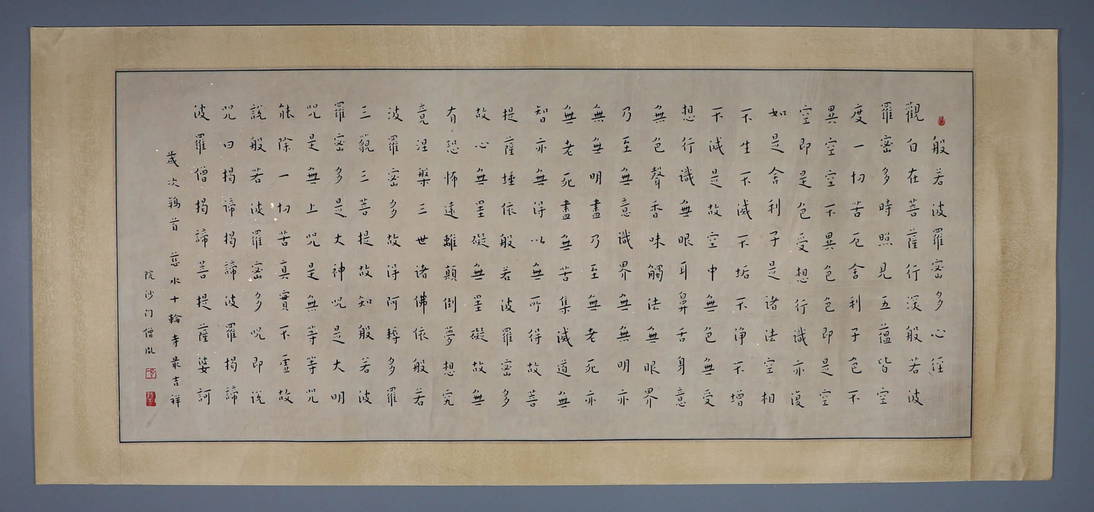 般若波羅密多心經
觀自在菩薩行深般若波
羅密多時照見五蘊皆空
度一切苦厄舍利子色不
異空空不異色色即是空
空即是色受想行識亦復
如是舍利子是诸法空相
不生不滅不垢不净不增
不減是故空中無色無受
想行識無眼耳鼻舌身意
無色聲香味觸法無眼界
乃至無意識界無無明亦
無無明盡乃至無老死亦
無老死盡無苦集滅道無
智亦無得以無所得故菩
提薩埵依般若波羅密多
故心無罣礙無罣礙故無
有恐怖遠離顛倒夢想究
竟涅槃三世诸佛依般若
波羅密多故得阿耨多羅
三藐三菩提故知般若波
羅密多是大神咒是大明
咒是無上咒是無等等咒
能除一切苦真實不虛故
說般若波羅密多咒即说
咒曰揭諦揭諦波羅揭諦
波羅僧揭諦菩提薩婆訶
歲次鶉首 慈水十輪寺最吉祥
院沙门僧